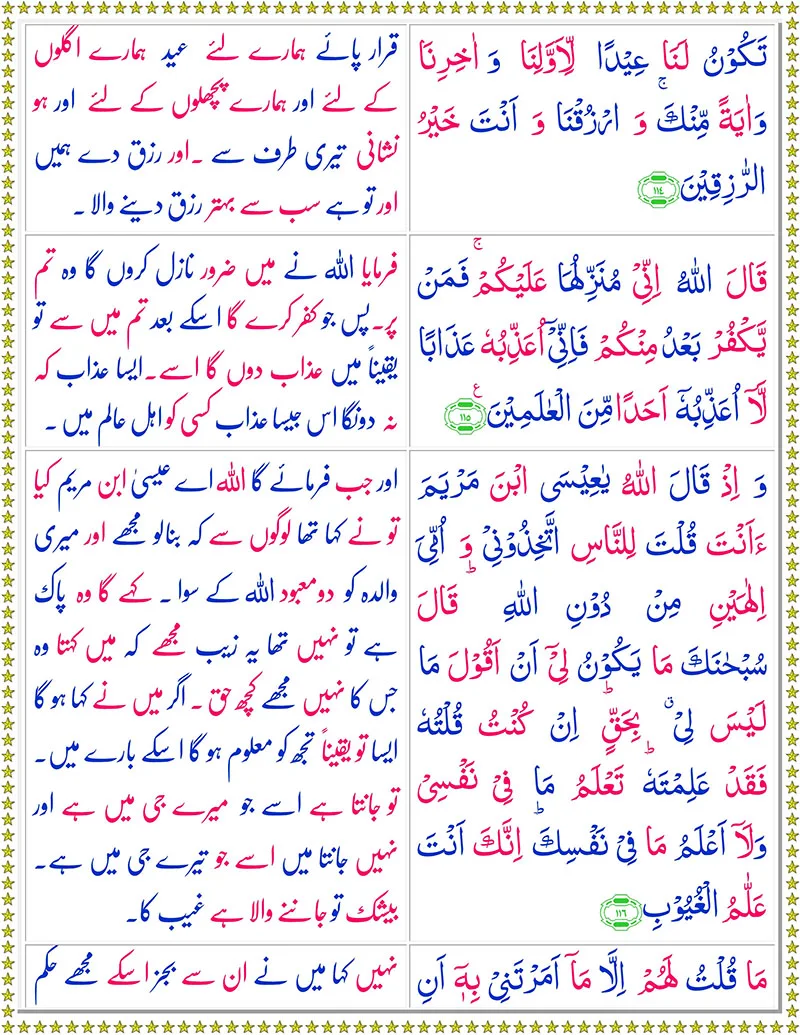 تَكُوْنُ لَنَا عِيْدًا لِّاَوَّلِنَا وَ اٰخِرِنَا
وَاٰيَةً مِّنْكَ ۚ وَ ارْزُقْنَا وَ اَنْتَ خَيْرُ
الرّٰزِقِيْنَ ١١٤
قرار پائے ہمارے لئے عید ہمارے اگلوں
کے لئے اور ہمارے پچھلوں کے لئے اور ہو
نشانی تیری طرف سے ۔اور رزق دے ہمیں
اور تو ہے سب سے بہتر رزق دینے والا ۔
قَالَ اللهُ اِنِّىْ مُنَزِّلُهَا عَلَيْكُمْ ۚ فَمَنْ
يَّكْفُرْ بَعْدُ مِنْكُمْ فَاِنِّىْۤ اُعَذِّبُهٗ عَذَابًا
لَّاۤ اُعَذِّبُهٗۤ اَحَدًا مِّنَ الْعٰلَمِيْنَ ع ١١٥
فرمایا اللہ نے میں ضرور نازل کروں گا وہ تم
پر۔پس جو کفر کرے گا اسکے بعد تم میں سے تو
یقیناً میں عذاب دوں گا اسے۔ایسا عذاب کہ
نہ دونگا اس جیسا عذاب کسی کو اہل عالم میں ۔
وَ اِذْ قَالَ اللهُ يٰعِيْسَى ابْنَ مَرْيَمَ
ءَاَنْتَ قُلْتَ لِلنَّاسِ اتَّخِذُوْنِىْ وَ اُمِّىَ
اِلٰهَيْنِ مِنْ دُوْنِ اللهِ ؕ قَالَ
سُبْحٰنَكَ مَا يَكُوْنُ لِىْۤ اَنْ اَقُوْلَ مَا
لَيْسَ لِىْ ۗ بِحَقٍّ ؕ اِنْ كُنْتُ قُلْتُهٗ
فَقَدْ عَلِمْتَهٗ ؕ تَعْلَمُ مَا فِىْ نَفْسِىْ
وَلَاۤ اَعْلَمُ مَا فِىْ نَفْسِكَ ؕ اِنَّكَ اَنْتَ
عَلَّٰمُ الْغُيُوْبِ ١١٦
اور جب فرمائے گا اللہ اے عیسیٰ ابن مریم کیا
تو نے کہا تھا لوگوں سے کہ بنالو مجھے اور میری
والدہ کو دومعبود اللہ کے سوا ۔ کہے گا وہ پاک
ہے تو نہیں تھا یہ زیب مجھے کہ میں کہتا وہ
جس کا نہیں مجھے کچھ حق ۔ اگر میں نے کہا ہو گا
ایسا تو یقیناً تجھ کو معلوم ہو گا اسکے بارے میں۔
تو جانتا ہے اسے جو میرے جی میں ہے اور
نہیں جانتا میں اسے جو تیرے جی میں ہے۔
بیشک تو جاننے والا ہے غیب کا۔
مَا قُلْتُ لَهُمْ اِلَّا مَاۤ اَمَرْتَنِىْ بِهٖۤ اَنِ
نہیں کہا میں نے ان سے بجز اسکے مجھے حکم